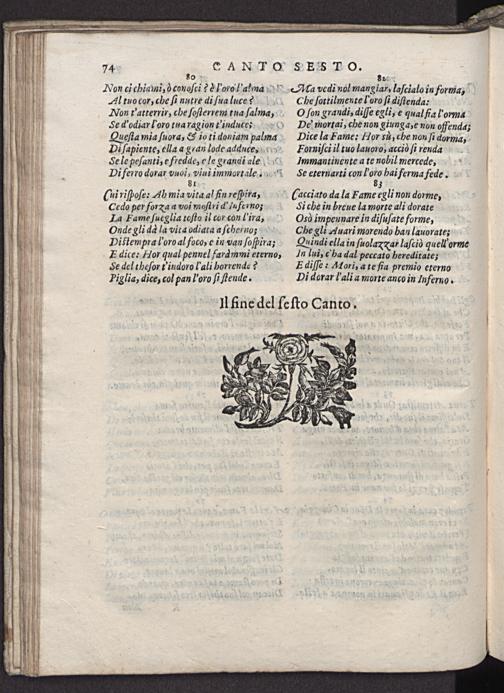 74 CANTO SESTO.
80
Non ci chiami, ò conosci? è l'oro l'alma
Al tuo cor, che si nutre di sua luce?
Non t'atterrir, che sosterrem tua salma,
Se d'odiar l'oro tua ragion t'induce;
Questa mia suora, & io ti doniam palma
Di sapiente, ella a gran lode adduce,
Se le pesanti, e fredde, e le grandi ale
Di ferro dorar vuoi, viui immortale.
81
Cui rispose: Ah mia vita al fin respira,
Cedo per forza a voi mostri d'inferno;
La Fame sueglia tosto il cor con l'ira,
Onde gli dà la vita odiata a scherno;
Distempra l'oro al foco, e in van sospira;
E dice: Hor qual pennel farammi eterno,
Se del thesor t'indoro l'ali horrende?
Piglia, dice, col pan l'oro si stende.
82
Ma vedi nol mangiar, lascialo in forma,
Che sottilmente l'oro si distenda:
O son grandi, disse egli, e qual fia l'orma
De' mortai, che non giunga, e non offenda;
Dice la Fame: Hor sù, che non si dorma,
Fornisci il tuo lauoro, acciò si renda
Immantinente a te nobil mercede,
Se eternarti con l'oro hai ferma fede.
83
Cacciato da la Fame egli non dorme,
Si che in breue la morte ali dorate
Osò impennare in disusate forme,
Che gli Auari morendo han lauorate;
Quindi ella in suolazzar lasciò quell'orme
In lui, c'ha dal peccato hereditate;
E disse: Mori, a te sia premio eterno
Di dorar l'ali a morte anco in Inferno.
Il fine del sesto Canto.